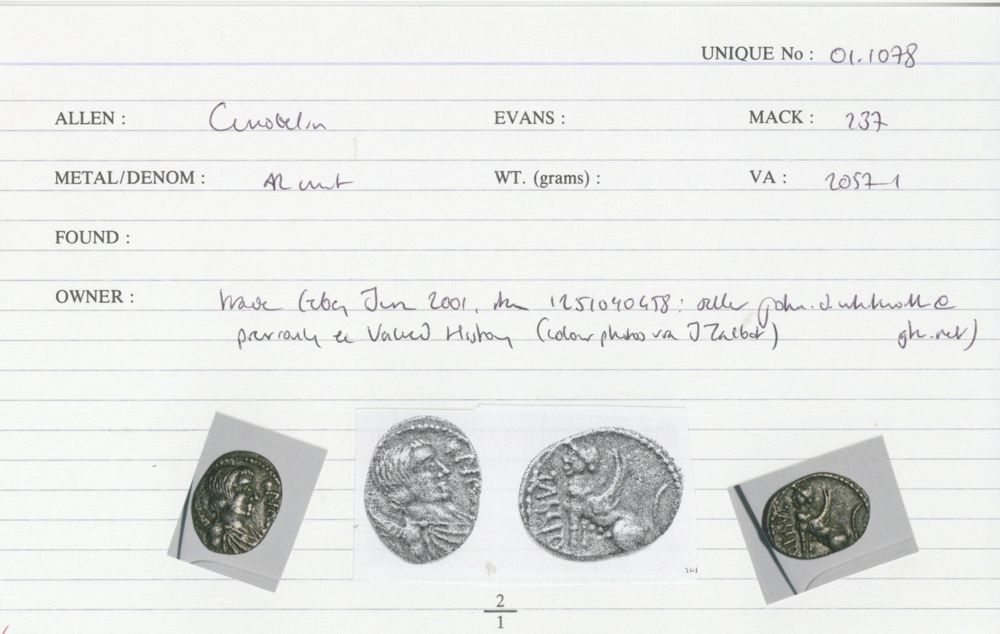 UNIQUE No : 01.1078
ALLEN : Cunobelin EVANS : MACK : 237
METAL/DENOM : AR unit WT. (grams) : VA : 2057-1
FOUND :
OWNER : trade (ebay Jun 2001, item 1251040458: seller john.
previously ex Valued History (colour photos via J Talbot)
2
1